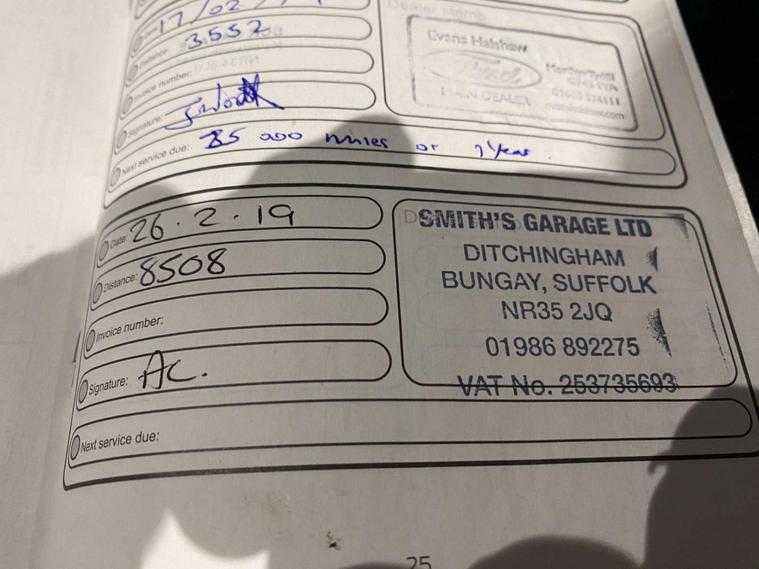 Date: 17/02/
Distance: 3552
Invoice number:
Signature:
Next service due: 85 000 miles or 1 Year
Dealer stamp
Evans Halshaw
Ford
MAIN DEALER
Date: 26.2.19
Distance: 8508
Invoice number:
Signature: AC.
Next service due:
SMITH'S GARAGE LTD
DITCHINGHAM
BUNGAY, SUFFOLK
NR35 2JQ
01986 892275
VAT No. 253735693
25